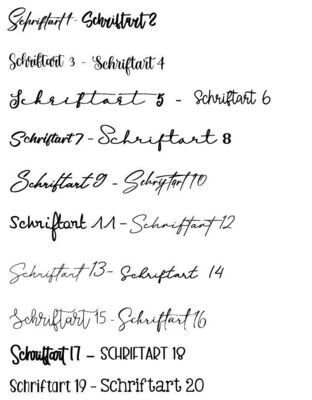 Schriftart 1 - Schriftart 2
Schriftart 3 - Schriftart 4
Schriftart 5 - Schriftart 6
Schriftart 7 - Schriftart 8
Schriftart 9 - Schriftart 10
Schriftart 11 - Schriftart 12
Schriftart 13 - Schriftart 14
Schriftart 15 - Schriftart 16
Schriftart 17 - SCHRIFTART 18
Schriftart 19 - Schriftart 20